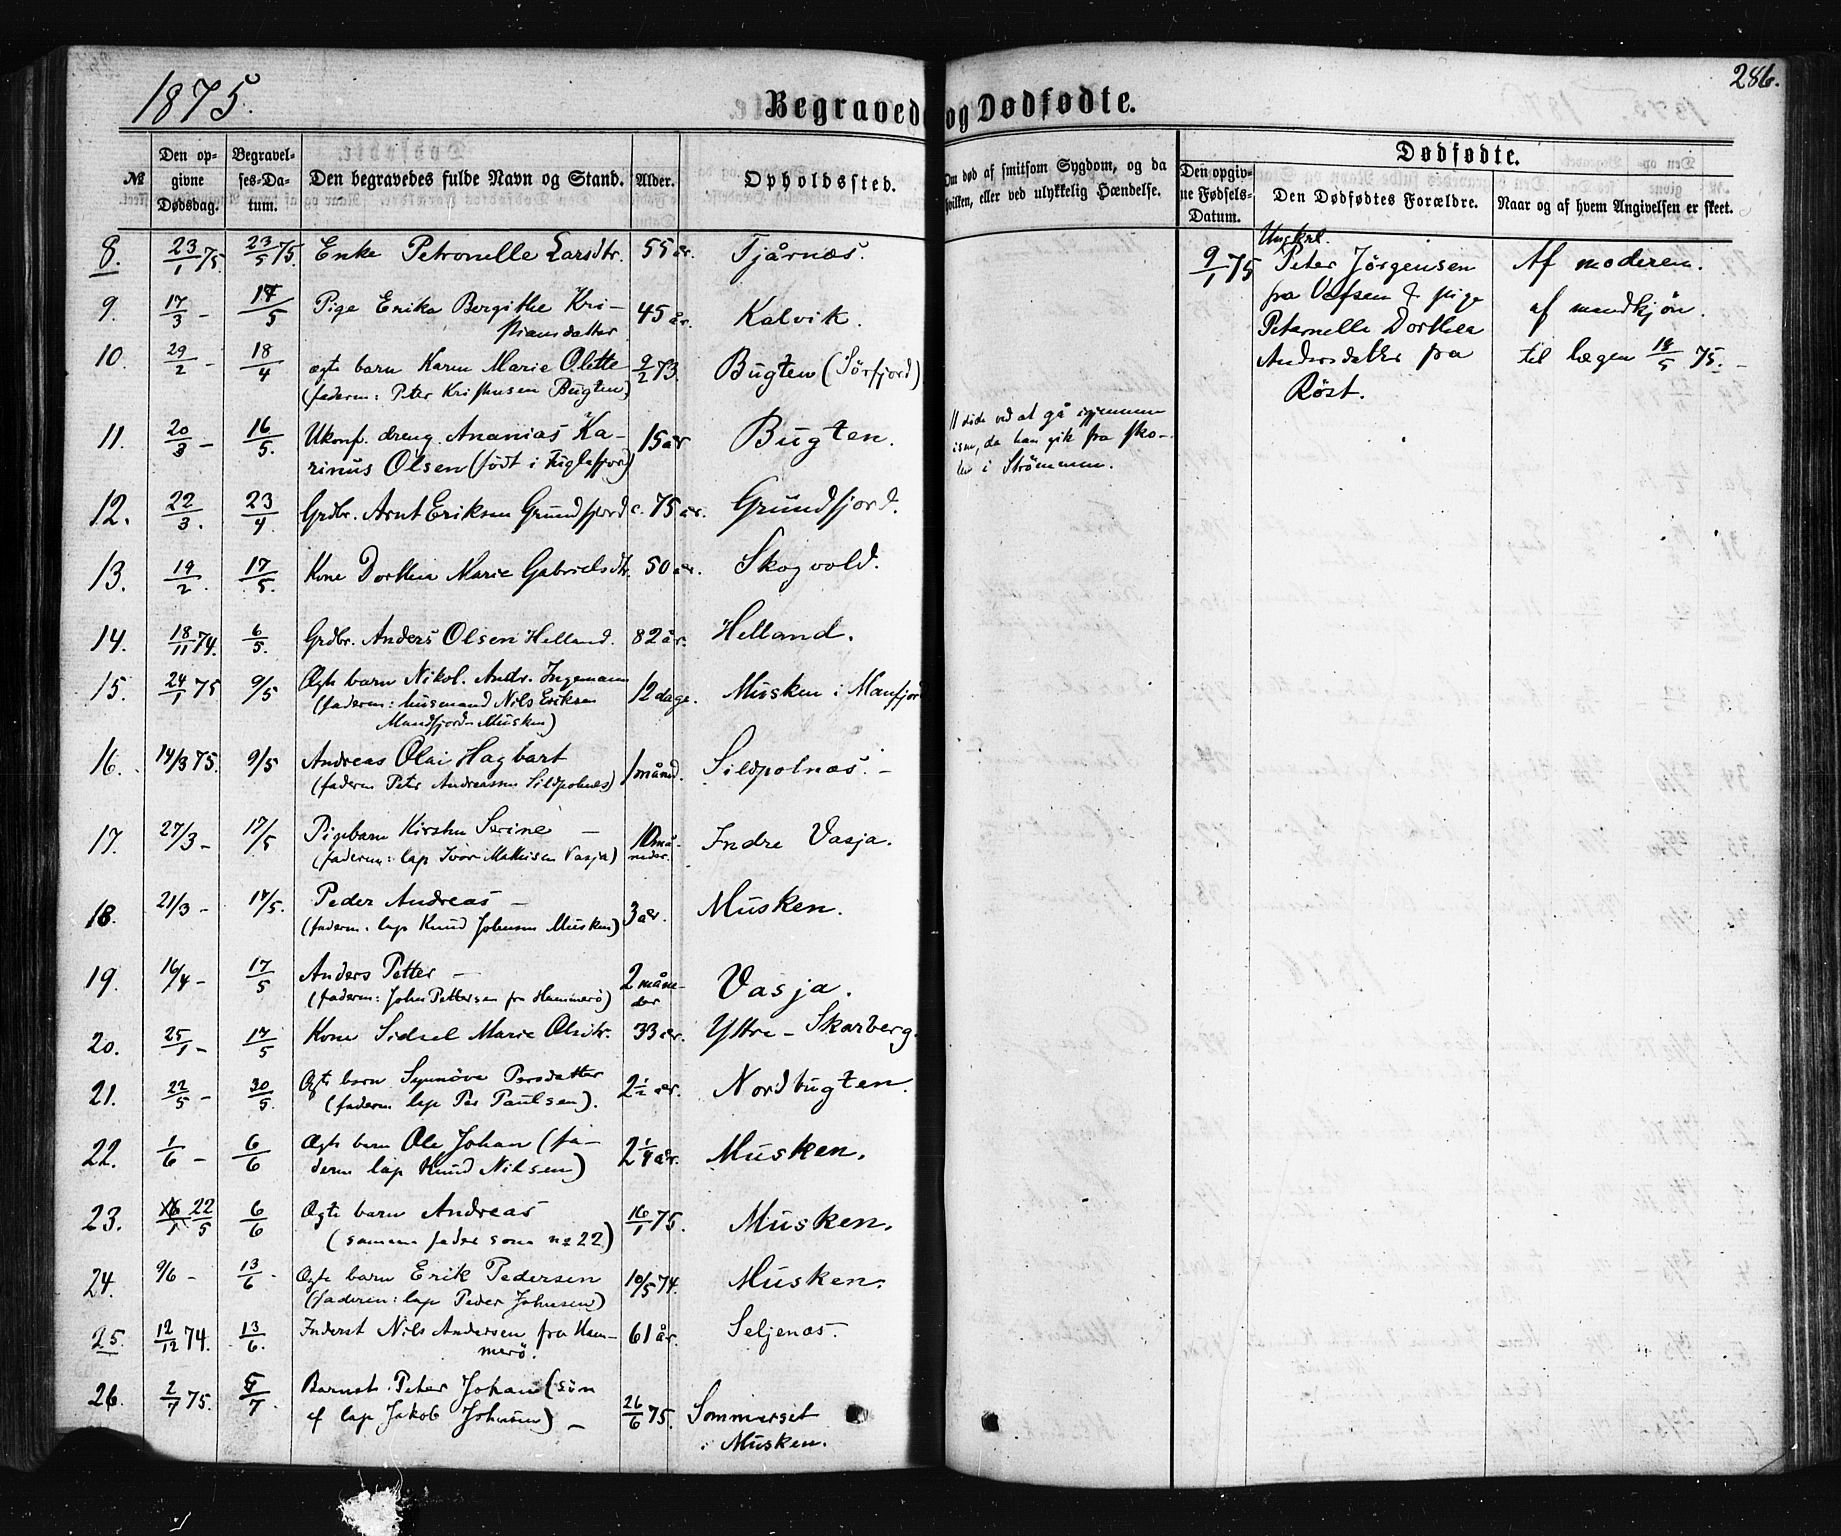 1875.
286.
Begravede og Dødfødte.
Dødfødte.
№
Den op-
givne
Dødsdag.
Begravel-
ses-Da-
tum.
Den begravedes fulde Navn og Stand.
Alder.
Opholdssted.
Om død af smitsom Sygdom, og da
hvilken, eller ved ulykkelig Hændelse.
Den opgiv-
ne Fødsels-
Datum.
Den Dødfødtes Forældre.
Naar og af hvem Angivelsen er skeet.
8. 23/1 75. 23/5 75. Enke Petronelle Larsdtr. 55 år. Tjårnæs.
9/1 75 Ungkrl.
Peter Jørgensen
fra Vefsen & pige
Petternelle Dorthea
Andersdatter fra
Röst.
Af moderen.
af mandkjøn.
til lægen 18/5 75.-
9. 17/3 - 17/5 Pige Erika Bergithe Kri-
stiansdatter 45 år. Kalvik.
10. 29/2 - 18/4 ægte barn Karen Marie Olette
(faderen: Peter Kristiansen Bugten) 9/2 73. Bugten (Sørfjord)
11. 20/3 - 16/5. Ukonf. dreng Ananias Ka-
rinus Olsen (født i Fuglefjord) 15 år Bugten.
döde ved at gå igjennem
isen, da han gik fra sko-
len i Strömmen.
12. 22/3. 23/4 Grdbr. Arnt Eriksen Grundfjord c. 75 år. Grundfjord.
13. 19/2. 17/5. Kone Dorthea Marie Gabrielsdtr. 50 år. Skogvold.
14. 18/11 74. 6/5. Grdbr. Anders Olsen Helland. 82 år. Helland.
15. 24/1 75 9/5 Ægte barn Nikol. Andr. Ingemann
(faderen: husmand Nils Eriksen
Mandfjord-Musken) 12 dage. Musken i Manfjord
16. 14/3 75. 9/5 Andreas Olai Hagbart
(faderen Peter Andreassen Sildpolnes) 1 månd. Sildpolnæs.-
17. 27/3 - 17/5 Pigebarn Kirsten Serine -
(faderen: lap Ivar Mathisen Vasja) 10 må-
neder. Indre Vasja.
18. 21/3 - 17/5. Peder Andreas -
(faderen: lap Knud Johnsen Musken) 3 år. Musken.
19. 16/4 - 17/5 Anders Petter -
(faderen: John Pettersen fra Hammerö) 2 måne-
der Vasja.
20. 25/1 - 17/5 Kone Sidsel Marie Olsdtr. 33 år. Yttre-Skarberg.
21. 22/5 - 30/5. Ægte barn Synnöve Persdatter
(faderen lap Per Paulsen). 2 1/2 år. Nordbugten.
22. 1/6 - 6/6 Ægte barn Ole Johan (fa-
deren lap Knud Nilsen) 2 1/4 år. Musken.
23. 22/5 6/6 Ægte barn Andreas
(samme fader som no 22.) 16/1 75. Musken.
24. 9/6 - 13/6 - Ægte barn Erik Pedersen
(faderen: lap Peder Johnsen) 10/5 74. Musken.
25. 12/12 74. 13/6. Inderst Nils Andersen fra Ham-
merö. 61 år. Seljenæs.
26. 2/7 75. 5/7. Barnet Peter Johan (sön
af lap Jakob Johnsen) - 26/6 75. Sommerset
i Musken.